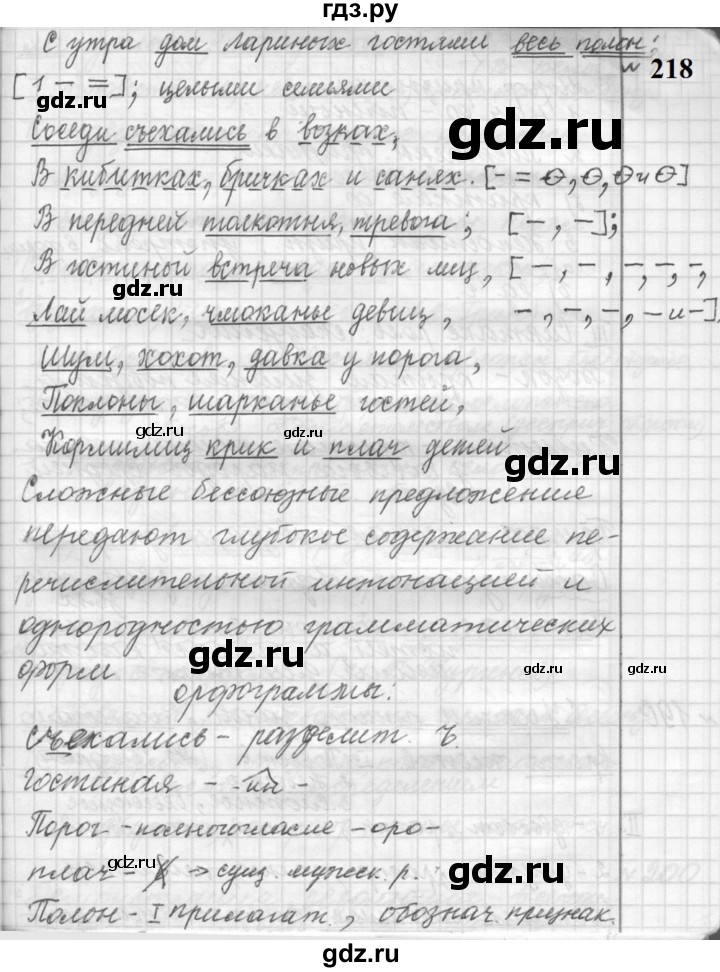 гдз.ру
С утра дом Лариных гостями весь полон;
№ 218
[1 – =]; целыми семьями
Соседи съехались в возках,
В кибитках, бричках и санях. [– = О, О, О и О]
В передней толкотня, тревога; [–, –];
В гостиной встреча новых лиц, [–, –, –, –, –,
Лай мосек, чмоканье девиц, –, –, –, – и –].
Шум, хохот, давка у порога,
Поклоны, шарканье гостей,
Кормилиц крик и плач детей
Сложные бессоюзные предложение
передают глубокое содержание пе-
речислительной интонацией и
однородностью грамматических
форм
орфограммы:
съехались – разделит. Ъ.
гостиная – -ин-
Порог – полногласие – оро-
плач – Ь → сущ. мужск. р.
Полон – I прилагат., обознач. признак.
gdz.ru
gdz.ru
gdz.ru
gdz.ru
gdz.ru
gdz.ru
gdz.ru
gdz.ru
gdz.ru
gdz.ru
gdz.ru
gdz.ru
gdz.ru
gdz.ru